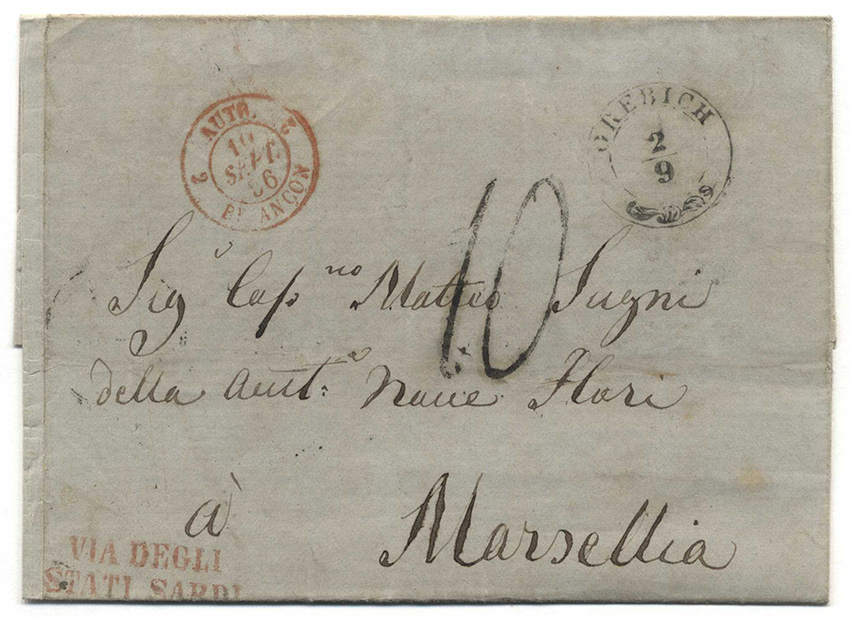 AUTR.
2 10 2
SEPT.
56
BRIANCON
OREBICH
2
9
10
Sig.r Cap.no Matteo Sugni
della Aust.a Nave Flori
à
Marsellia
VIA DEGLI
STATI SARDI